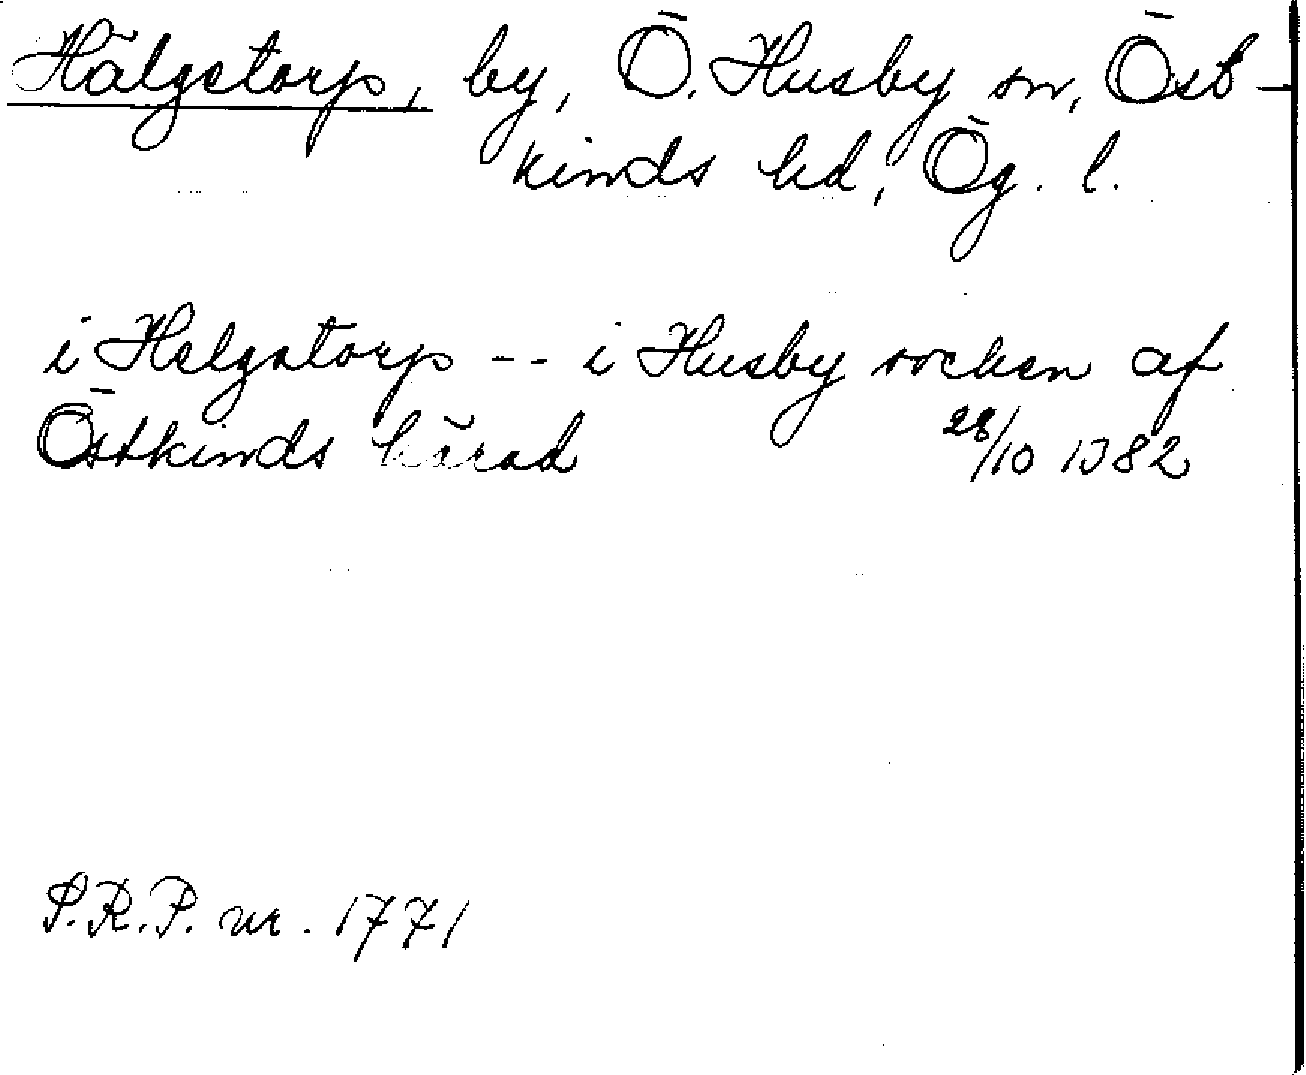 Hälgetorp, by, Ö. Husby sn, Öst-
kinds hd, Ög. l.
i Helgatorp -- i Husby socken af
Östkinds härad 28/10 1382
S.R.P. nr. 1771